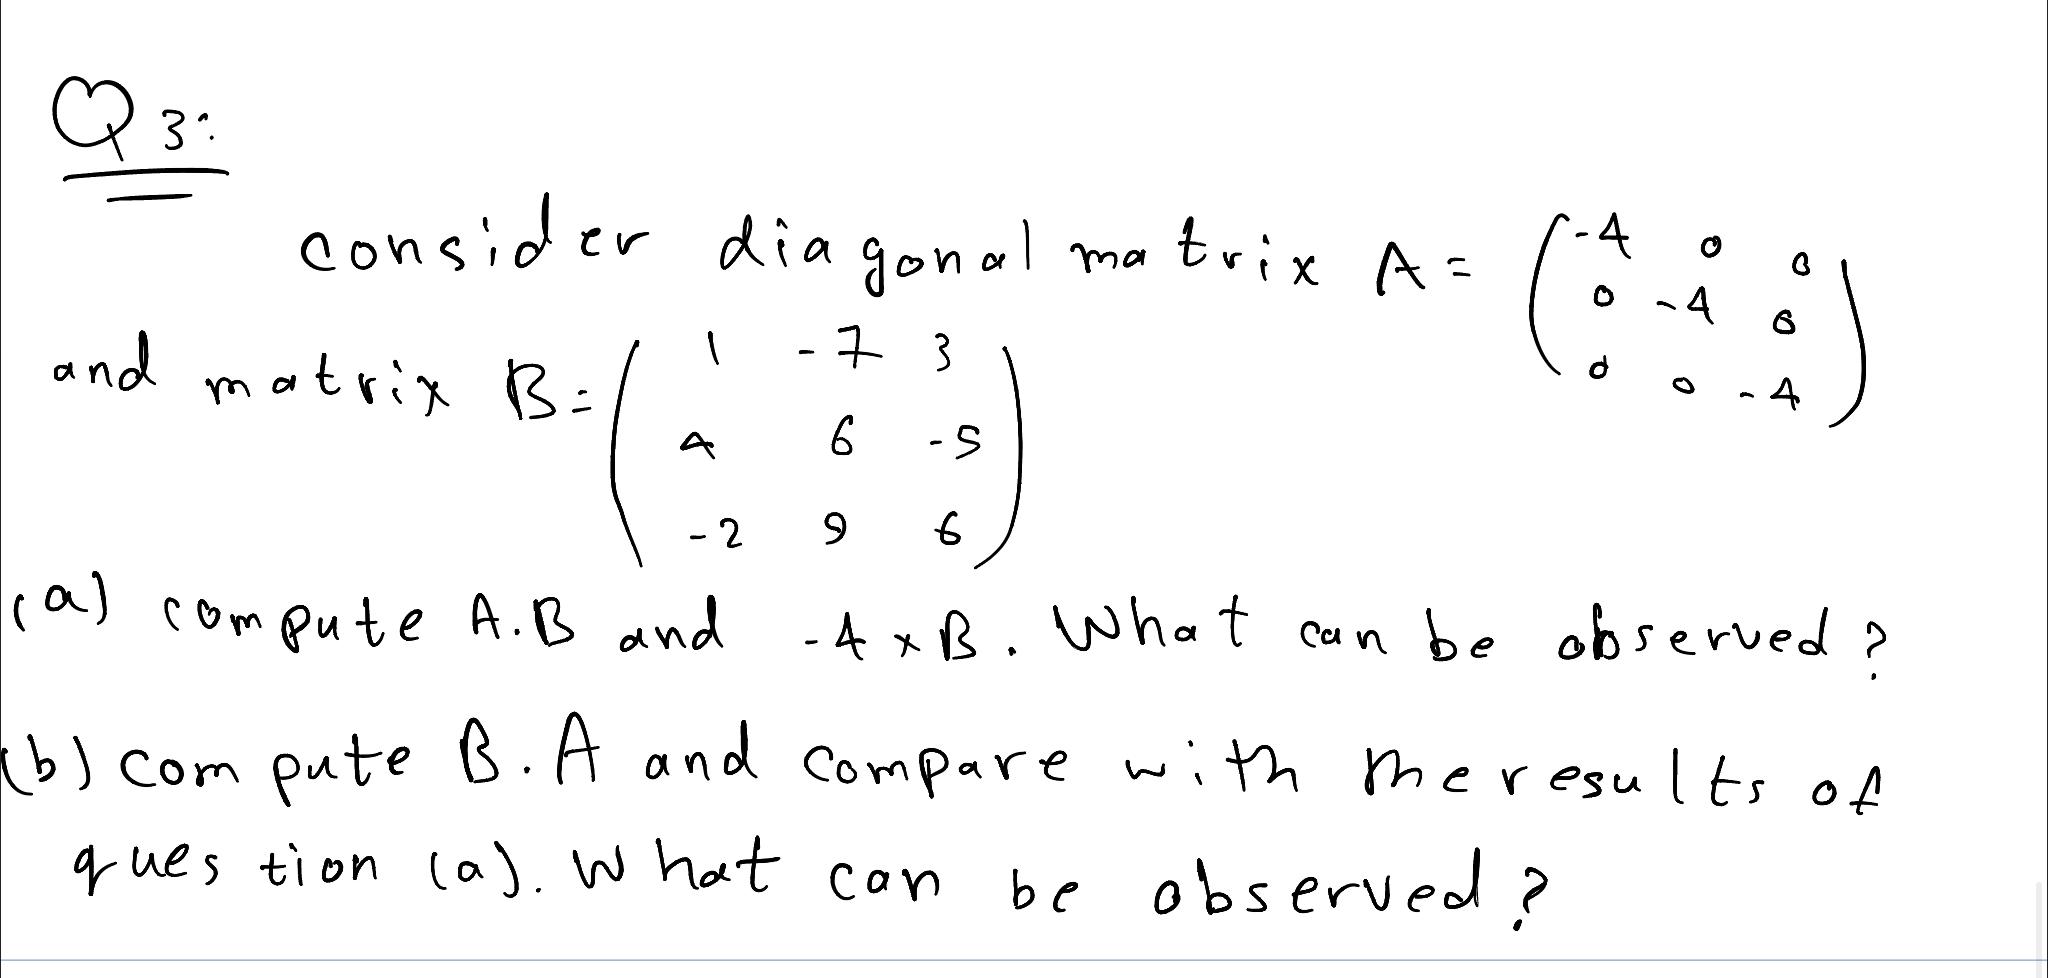 Q3:
consider diagonal matrix A = (-4 0 0
0 -4 0
0 0 -4)
and matrix B = (1 -7 3
4 6 -5
-2 9 6)
(a) compute A.B and -4 × B. What can be observed?
(b) compute B.A and compare with the results of
question (a). What can be observed?